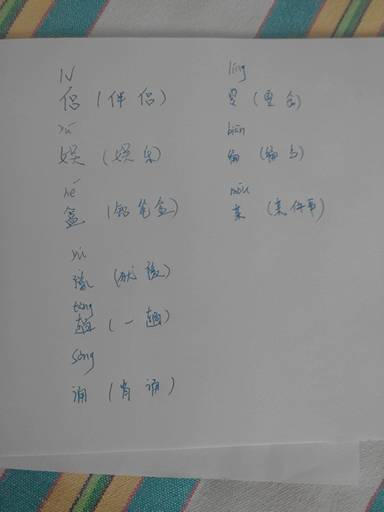 侣 (伴侣)
yú
娱 (娱乐)
hé
盒 (铅笔盒)
yù
豫 (犹豫)
tàng
趟 (一趟)
sòng
诵 (背诵)
líng
biān
编
mǒu
某 (某件事)